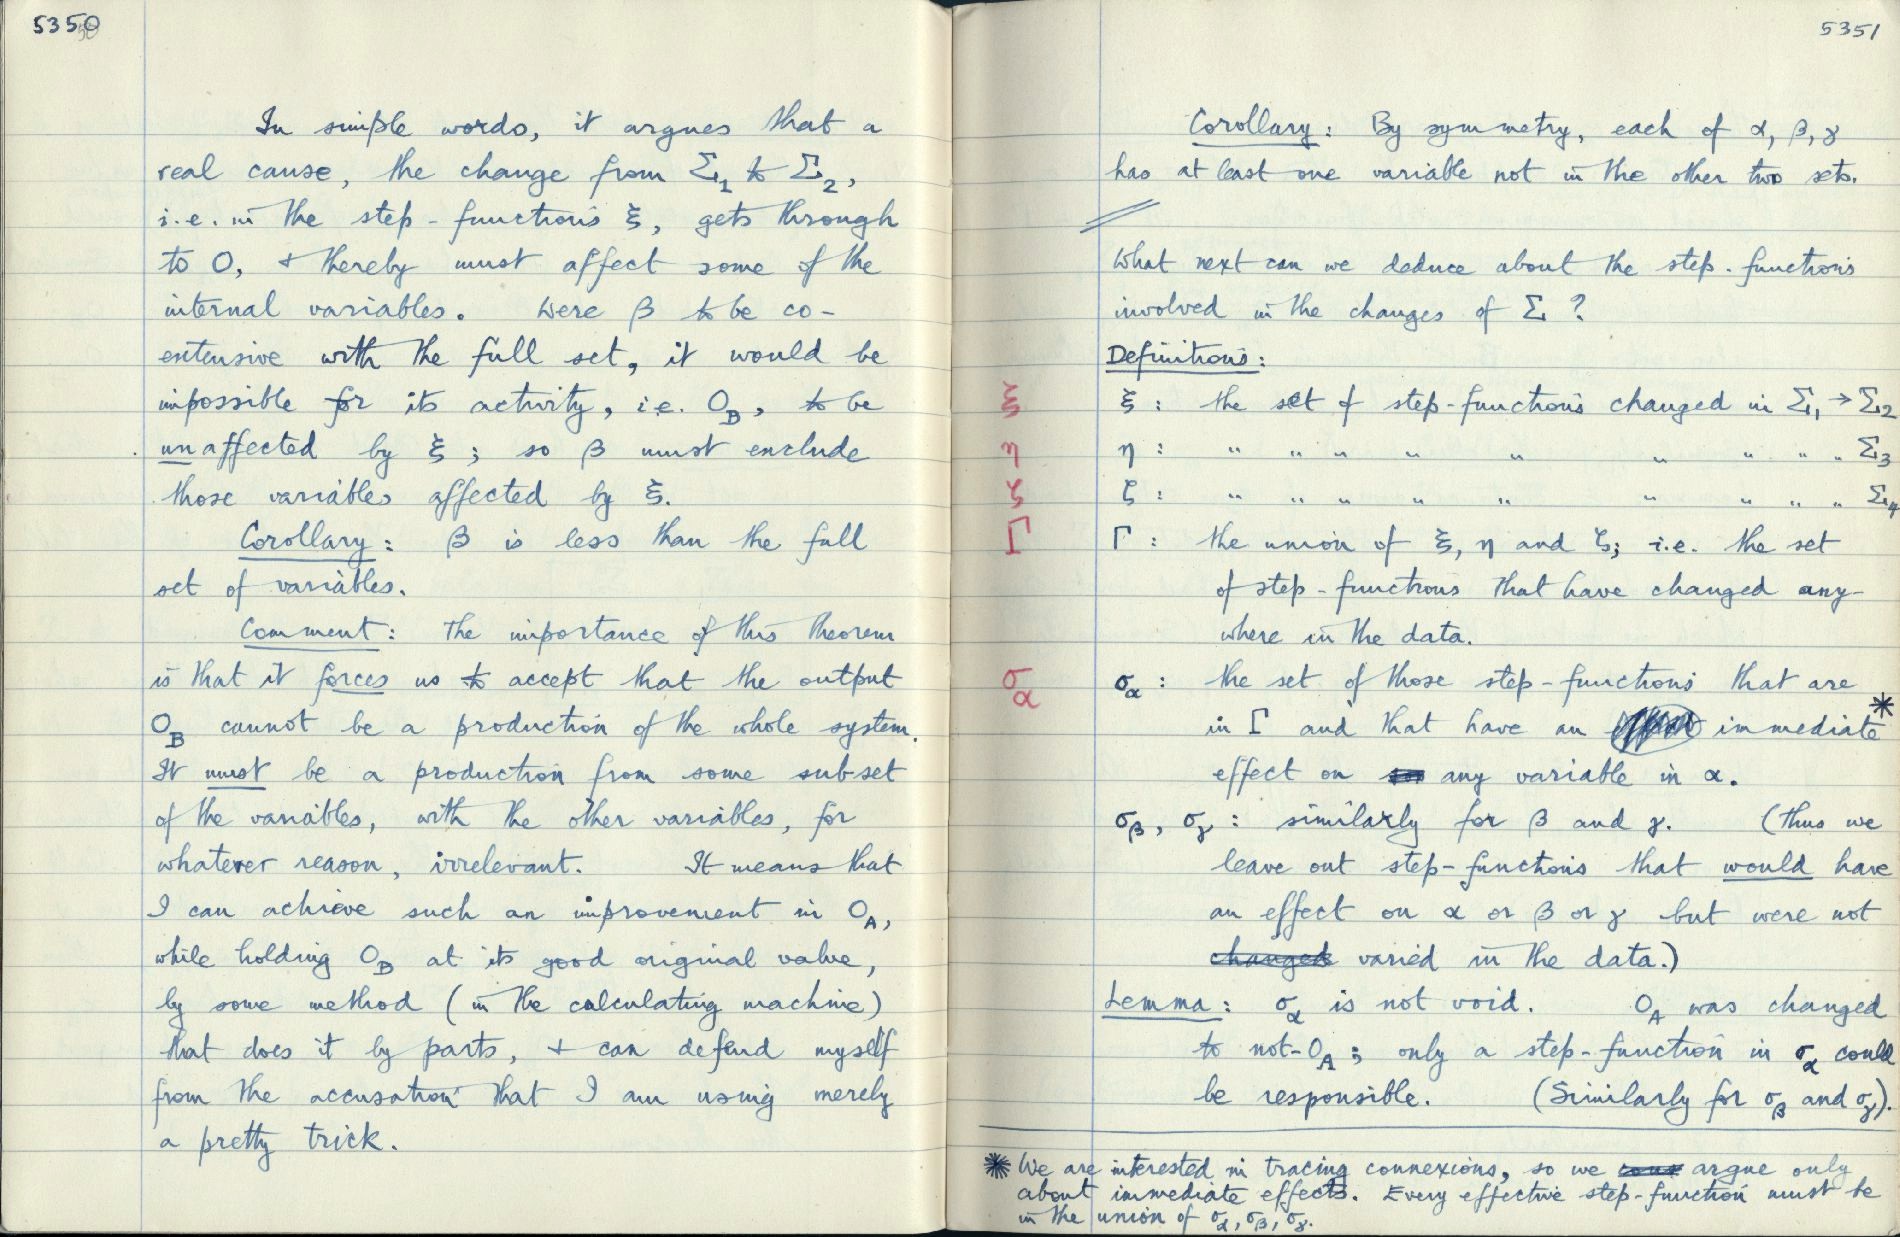 5350
In simple words, it argues that a
real cause, the change from Σ₁ to Σ₂,
i.e. in the step-functions ξ, gets through
to O, & thereby must affect some of the
internal variables. Were β to be co-
extensive with the full set, it would be
impossible for its activity, i.e. O_B, to be
unaffected by ξ ; so β must exclude
those variables affected by ξ.
Corollary: β is less than the full
set of variables.
Comment: The importance of this theorem
is that it forces us to accept that the output
O_B cannot be a production of the whole system.
It must be a production from some subset
of the variables, with the other variables, for
whatever reason, irrelevant. It means that
I can achieve such an improvement in O_A,
while holding O_B at its good original value,
by some method (in the calculating machine)
that does it by parts, & can defend myself
from the accusation that I am using merely
a pretty trick.
5351
Corollary: By symmetry, each of α, β, γ
has at least one variable not in the other two sets.
What next can we deduce about the step-functions
involved in the changes of Σ ?
Definitions:
ξ ξ : the set of step-functions changed in Σ₁ → Σ₂
η η : " " " " " " " " " Σ₃
ζ ζ : " " " " " " " " " Σ₄
Γ Γ : the union of ξ, η and ζ; i.e. the set
of step-functions that have changed any-
where in the data.
σ_α σ_α : the set of those step-functions that are
in Γ and that have an immediate*
effect on any variable in α.
σ_β, σ_γ : similarly for β and γ. (Thus we
leave out step-functions that would have
an effect on α or β or γ but were not
changed varied in the data.)
Lemma: σ_α is not void. O_A was changed
to not-O_A ; only a step-function in σ_α could
be responsible. (Similarly for σ_β and σ_γ).
* We are interested in tracing connexions, so we argue only
about immediate effects. Every effective step-function must be
in the union of σ_α, σ_β, σ_γ.